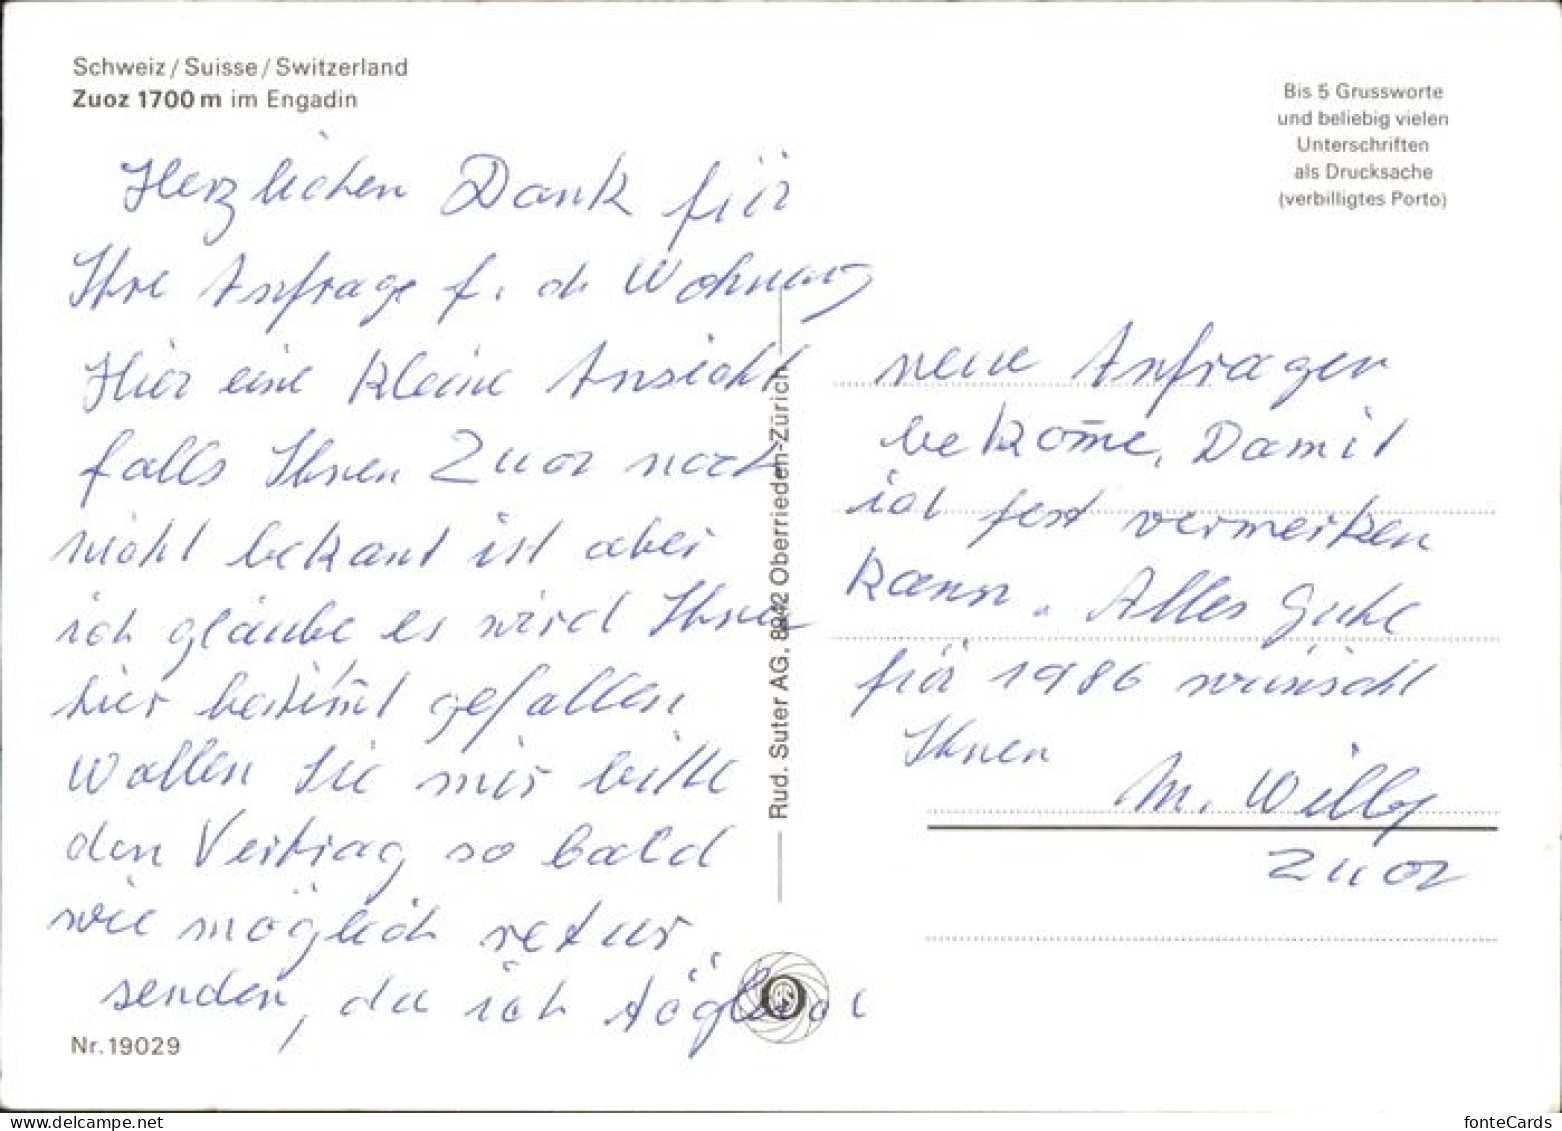 Schweiz / Suisse / Switzerland
Zuoz 1700 m im Engadin
Bis 5 Grussworte
und beliebig vielen
Unterschriften
als Drucksache
(verbilligtes Porto)
Herzlichen Dank für
Ihre Anfrage f. d. Wohnung
Hier eine kleine Ansicht
falls Ihnen Zuoz noch
nicht bekant ist aber
ich glaube es wird Ihnen
hier bestim̄t gefallen
Wollen Sie mir bitte
den Vertrag so bald
wie möglich retur
senden, da ich täglich
neue Anfragen
bekom̄e, Damit
ich fest vermerken
kann. Alles Gute
für 1986 wünscht
Ihnen
M. Willy
Zuoz
Rud. Suter AG. 8942 Oberrieden-Zürich
Nr. 19029
fonteCards